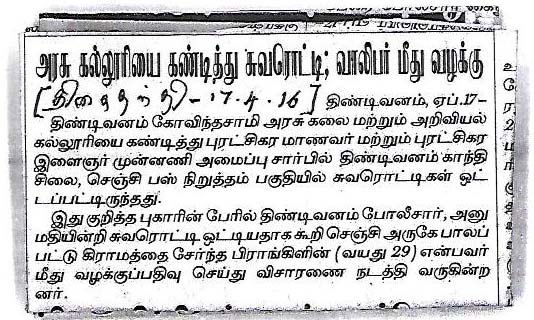 அரசு கல்லூரியை கண்டித்து சுவரொட்டி; வாலிபர் மீது வழக்கு
[தினத்தந்தி - 17.4.16] திண்டிவனம், ஏப்.17-
திண்டிவனம் கோவிந்தசாமி அரசு கலை மற்றும் அறிவியல்
கல்லூரியை கண்டித்து புரட்சிகர மாணவர் மற்றும் புரட்சிகர
இளைஞர் முன்னணி அமைப்பு சார்பில் திண்டிவனம் காந்தி
சிலை, செஞ்சி பஸ் நிறுத்தம் பகுதியில் சுவரொட்டிகள் ஒட்
டப்பட்டிருந்தது.
இது குறித்த புகாரின் பேரில் திண்டிவனம் போலீசார், அனு
மதியின்றி சுவரொட்டி ஒட்டியதாக கூறி செஞ்சி அருகே பாலப்
பட்டு கிராமத்தை சேர்ந்த பிராங்கிளின் (வயது 29) என்பவர்
மீது வழக்குப்பதிவு செய்து விசாரணை நடத்தி வருகின்ற
னர்.